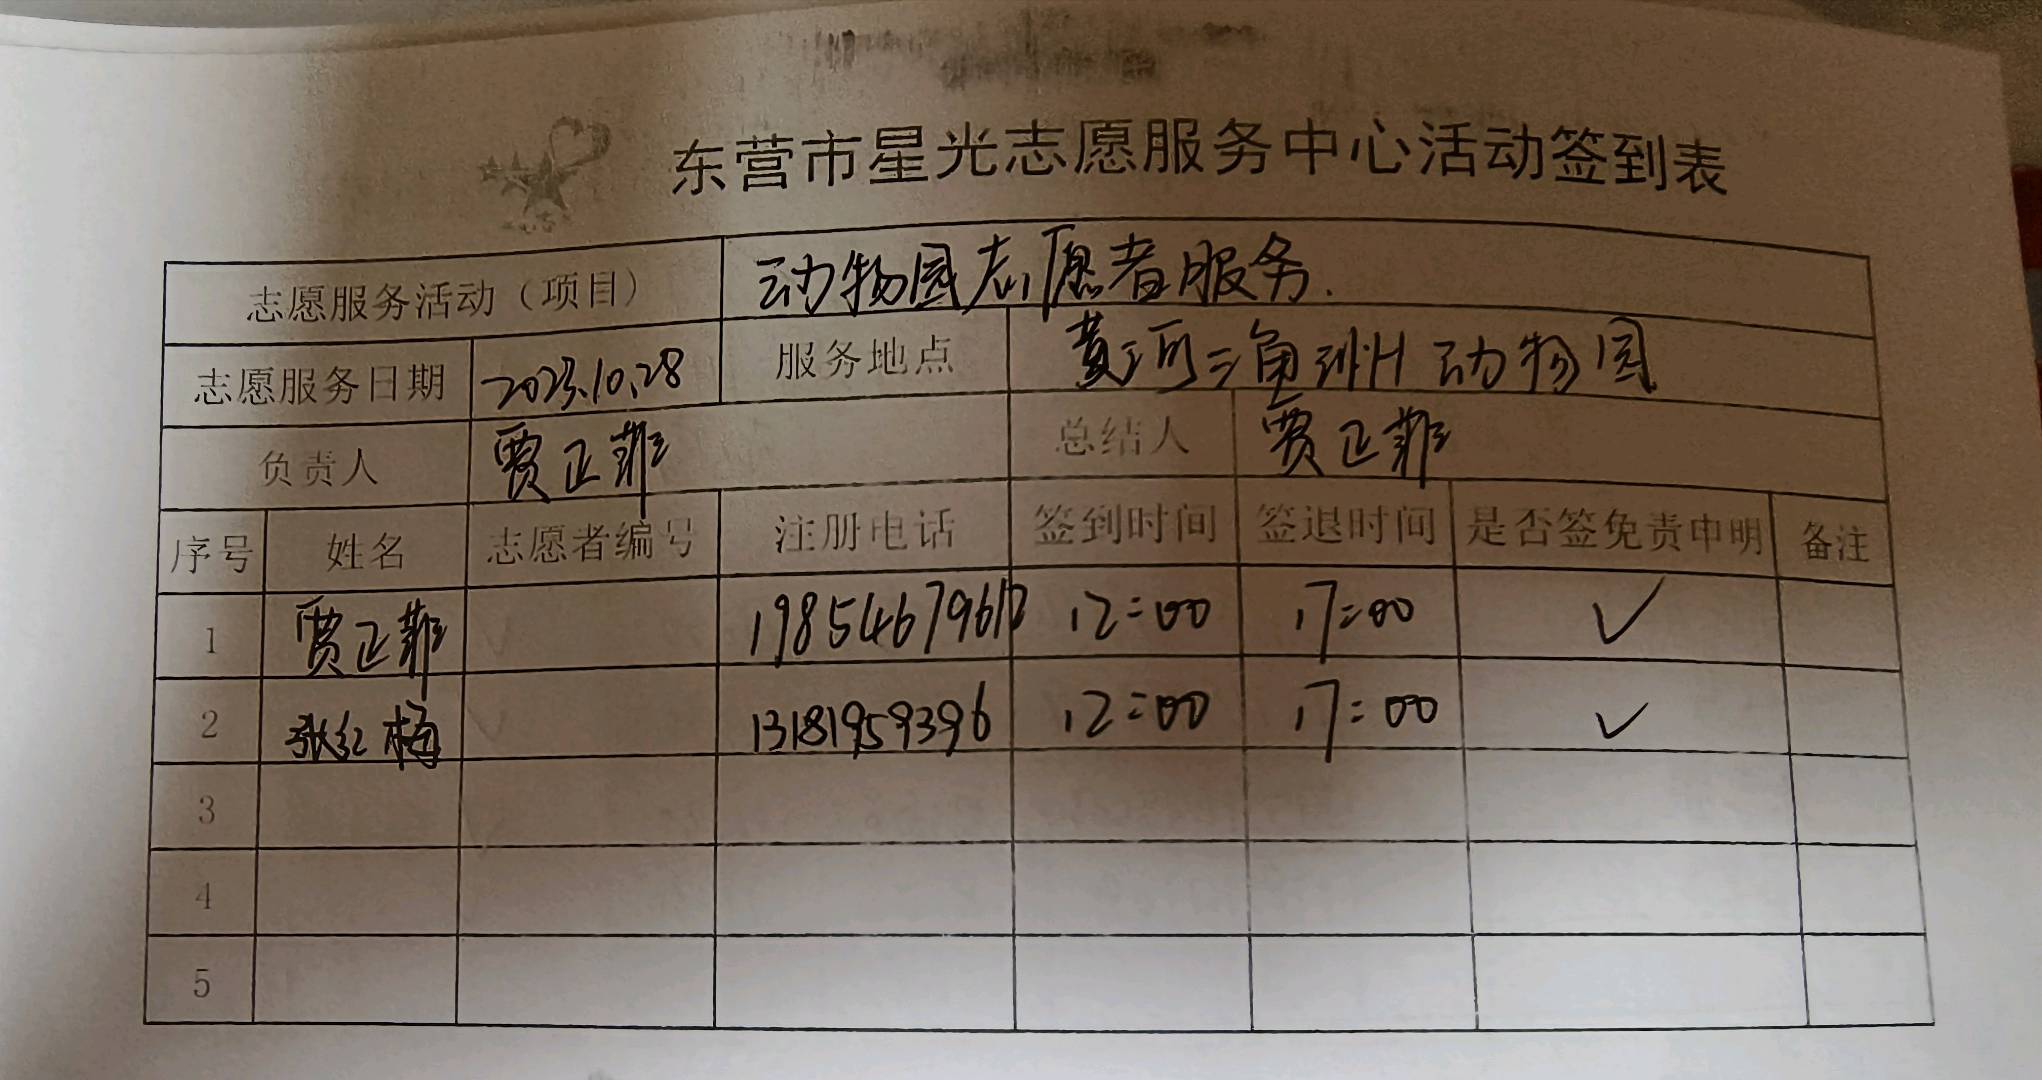 东营市星光志愿服务中心活动签到表
志愿服务活动（项目） 动物园志愿者服务.
志愿服务日期 2023.10.28 服务地点 黄河三角洲动物园
负责人 贾正菲 总结人 贾正菲
序号 姓名 志愿者编号 注册电话 签到时间 签退时间 是否签免责申明 备注
1 贾正菲 12:00 17:00 ✓
2 张红梅 13181959396 12:00 17:00 ✓
3
4
5